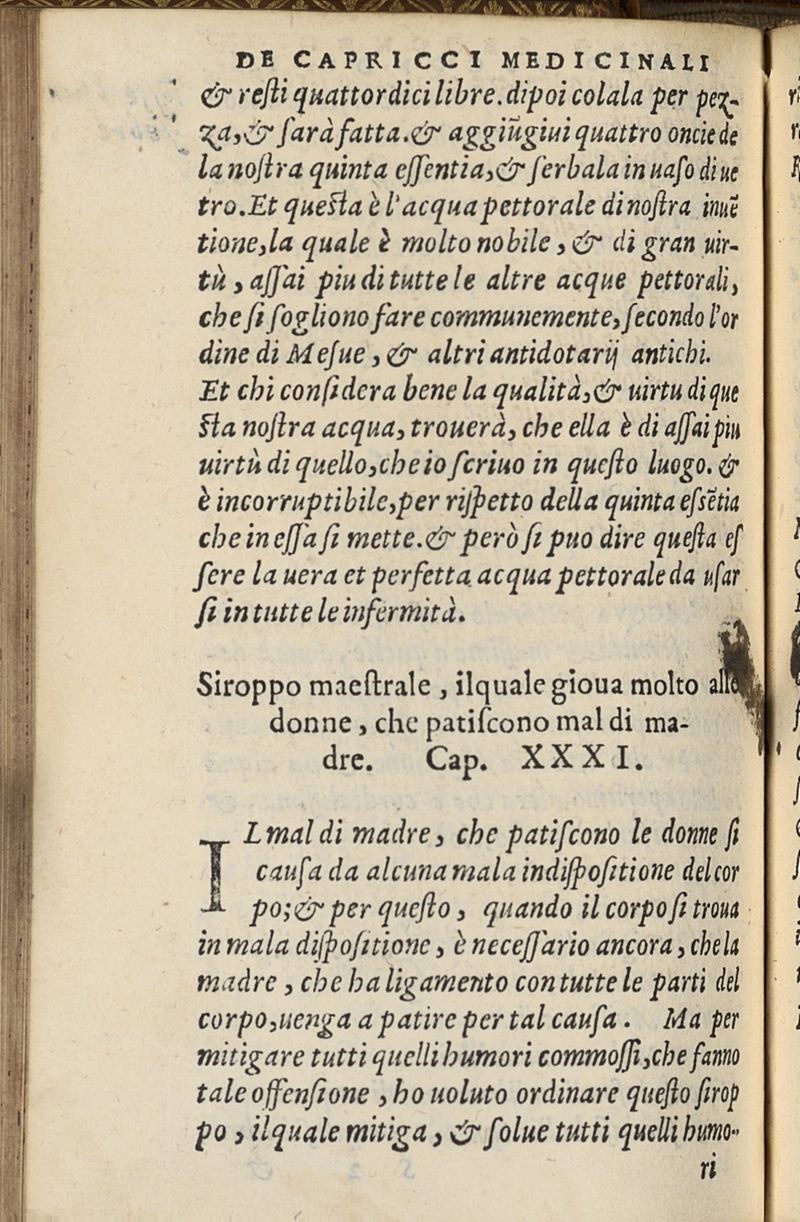 DE CAPRICCI MEDICINALI
& reſti quattordici libre. dipoi colala per pez-
za, & ſarà fatta. & aggiũgiui quattro oncie de
la noſtra quinta eſſentia, & ſerbala in uaſo di ue
tro. Et queſta è l'acqua pettorale di noſtra inuẽ
tione, la quale è molto nobile, & di gran uir-
tù, aſſai piu di tutte le altre acque pettorali,
che ſi ſogliono fare communemente, ſecondo l'or
dine di Meſue, & altri antidotarij antichi.
Et chi conſidera bene la qualità, & uirtu di que
ſta noſtra acqua, trouerà, che ella è di aſſai piu
uirtù di quello, che io ſcriuo in queſto luogo. &
è incorruptibile, per riſpetto della quinta eſsẽtia
che in eſſa ſi mette. & però ſi puo dire queſta eſ
ſere la uera et perfetta acqua pettorale da uſar
ſi in tutte le infermità.
Siroppo maeſtrale, ilquale gioua molto alle
donne, che patiſcono mal di ma-
dre. Cap. XXXI.
IL mal di madre, che patiſcono le donne ſi
cauſa da alcuna mala indiſpoſitione del cor
po; & per queſto, quando il corpo ſi troua
in mala diſpoſitione, è neceſſario ancora, che la
madre, che ha ligamento con tutte le parti del
corpo, uenga a patire per tal cauſa. Ma per
mitigare tutti quelli humori commoſſi, che fanno
tale offenſione, ho uoluto ordinare queſto ſirop
po, ilquale mitiga, & ſolue tutti quelli humo-
ri